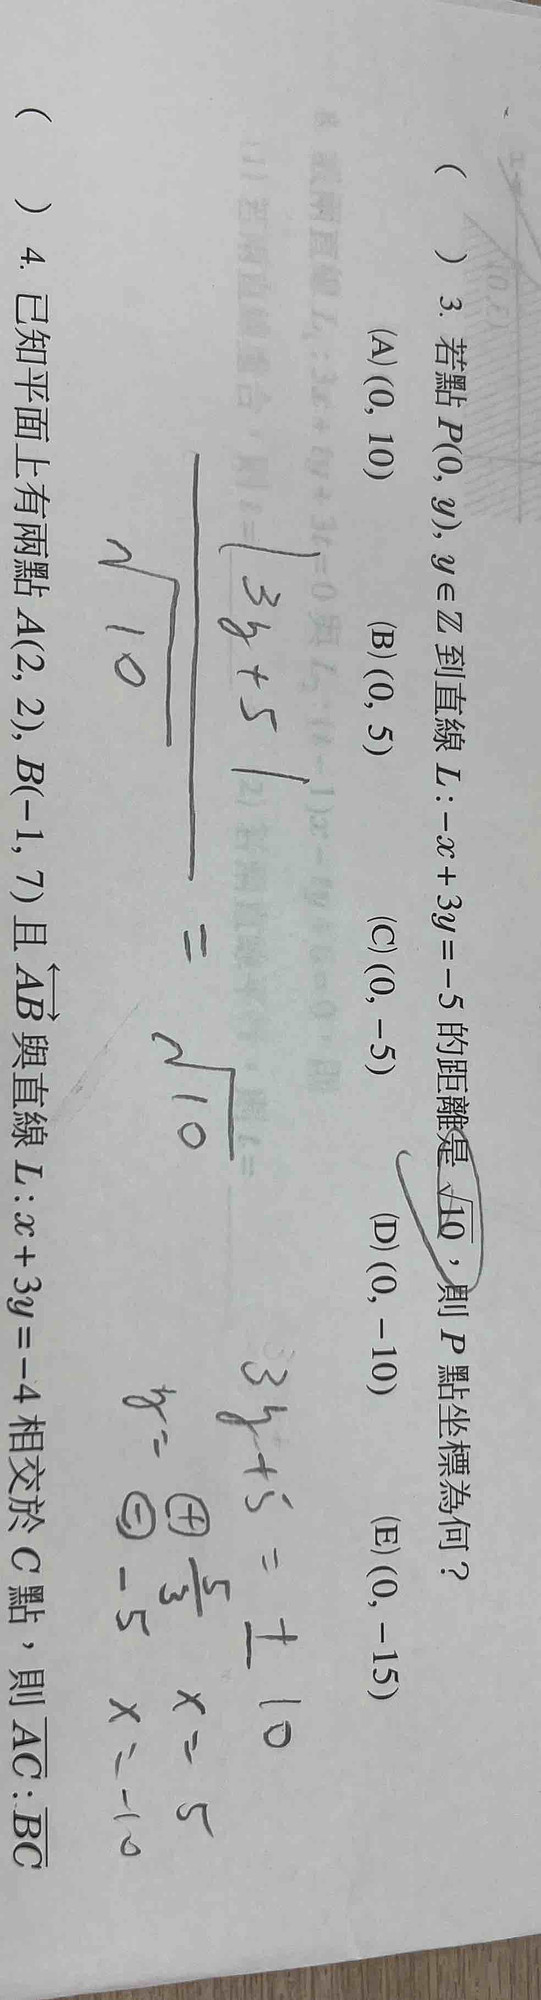 ( ) 3. 若點 P(0, y), y∈ℤ 到直線 L:−x+3y=−5 的距離是 √10，則 P 點坐標為何？
(A)(0, 10) (B)(0, 5) (C)(0, −5) (D)(0, −10) (E)(0, −15)
|3y+5|
√10
= √10
3y+5 = ±10
y= ⊕ 5/3 x=5
⊖ −5 x=−10
( ) 4. 已知平面上有兩點 A(2, 2), B(−1, 7) 且 AB 與直線 L:x+3y=−4 相交於 C 點，則 AC:BC